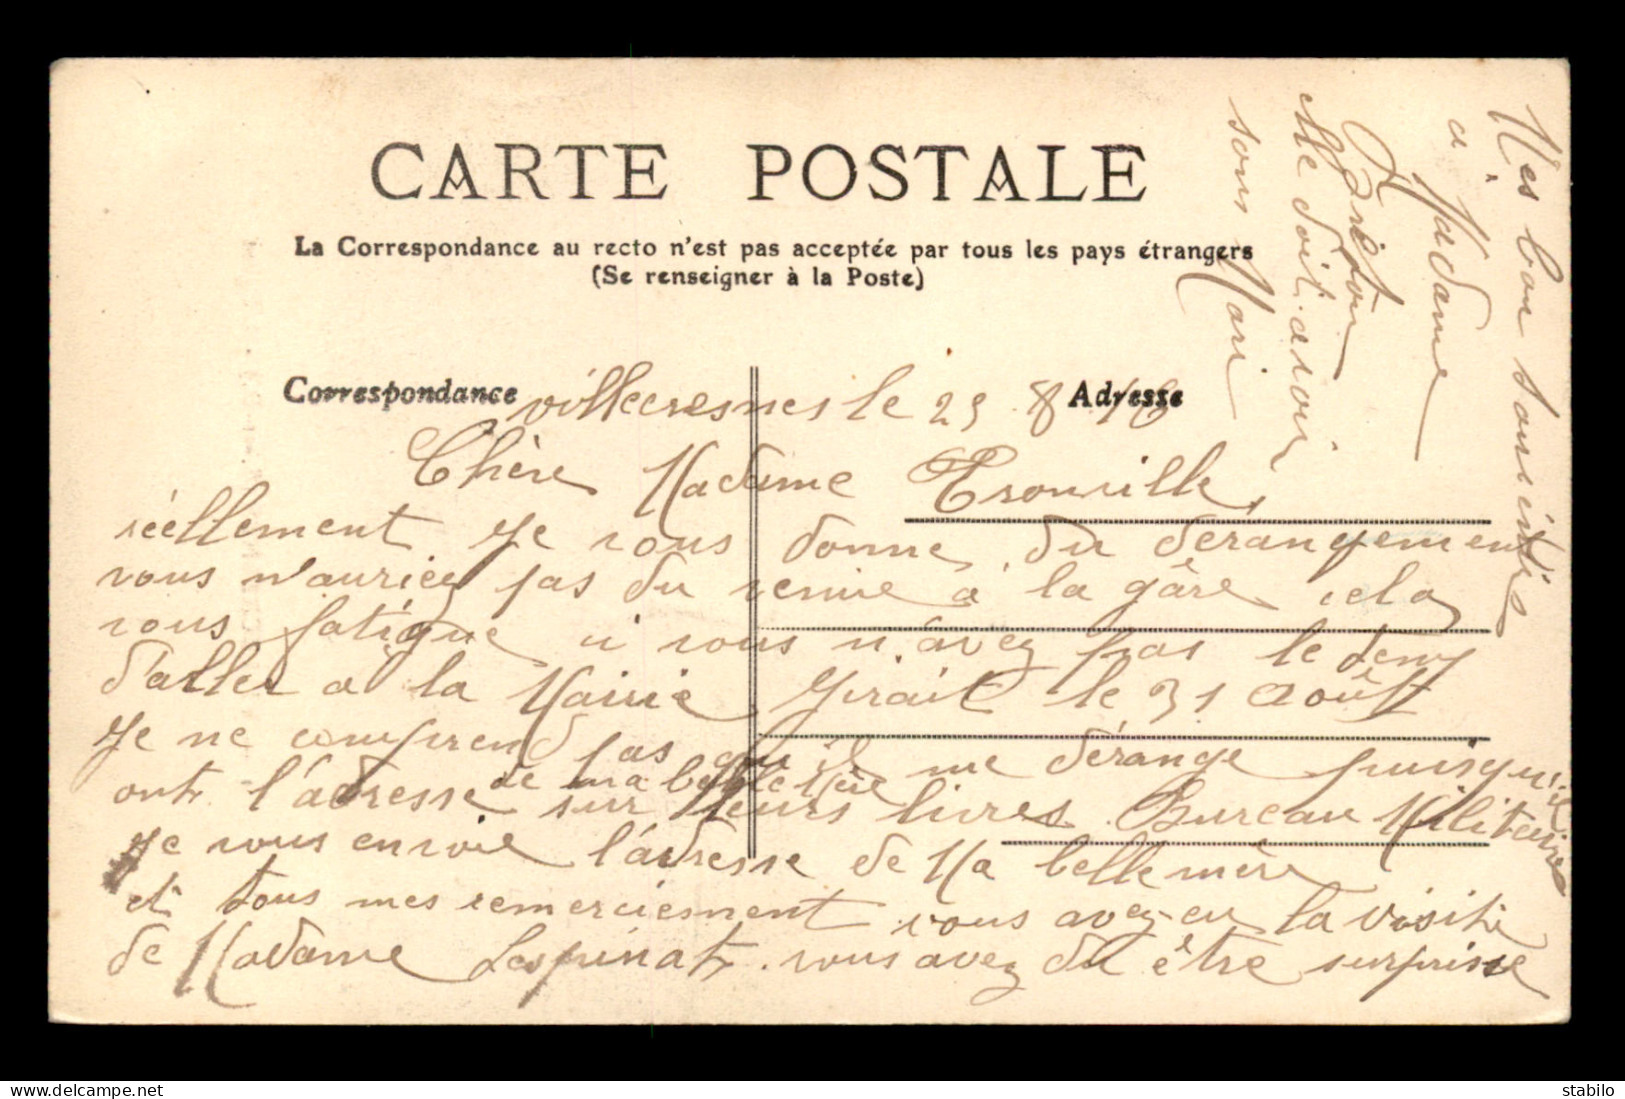 CARTE POSTALE
La Correspondance au recto n'est pas acceptée par tous les pays étrangers
(Se renseigner à la Poste)
Correspondance
Adresse
villecresnes le 29 8
Chère Madame Tronville,
réellement je vous donne du derangement
vous n'auriez pas du venire à la gâre cela
vous fatigue si vous n'avez pas le temp
d'aller a la Mairie j'irait le 31 Août
Je ne comprend pas qu'il me dérange puisqu'il
de ma belle Mère
ont l'adresse sur leurs livres Bureau Militaire
Je vous envoie l'adresse de Ma belle mère
et tous mes remerciesment vous avez eu la visite
de Madame Lespinat. vous avez du être surprise
Mes bon souvenirs
a Madame
Breton
elle doit avoir
sons Mari
delcampe.net
stabilo